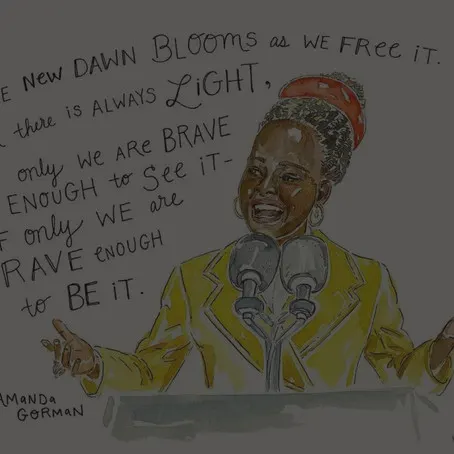 E NEW DAWN BLOOMS as WE FREE iT.
there is ALWAYS LiGHT,
only WE ARE BRAVE
ENOUGH to SEE iT-
F only WE are
RAVE ENOUGH
to BE iT.
AMANDA
GORMAN